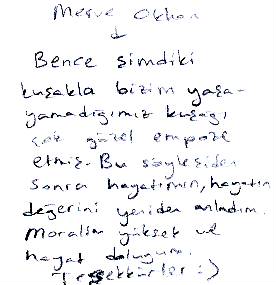 Merve Okhan
↓
Bence şimdiki
kuşakla bizim yaşa-
yamadığımız kuşağı
çok güzel empoze
etmiş. Bu söyleşiden
sonra hayatımın, hayatın
değerini yeniden anladım.
Moralim yüksek ve
hayat doluyum.
Teşekkürler :)